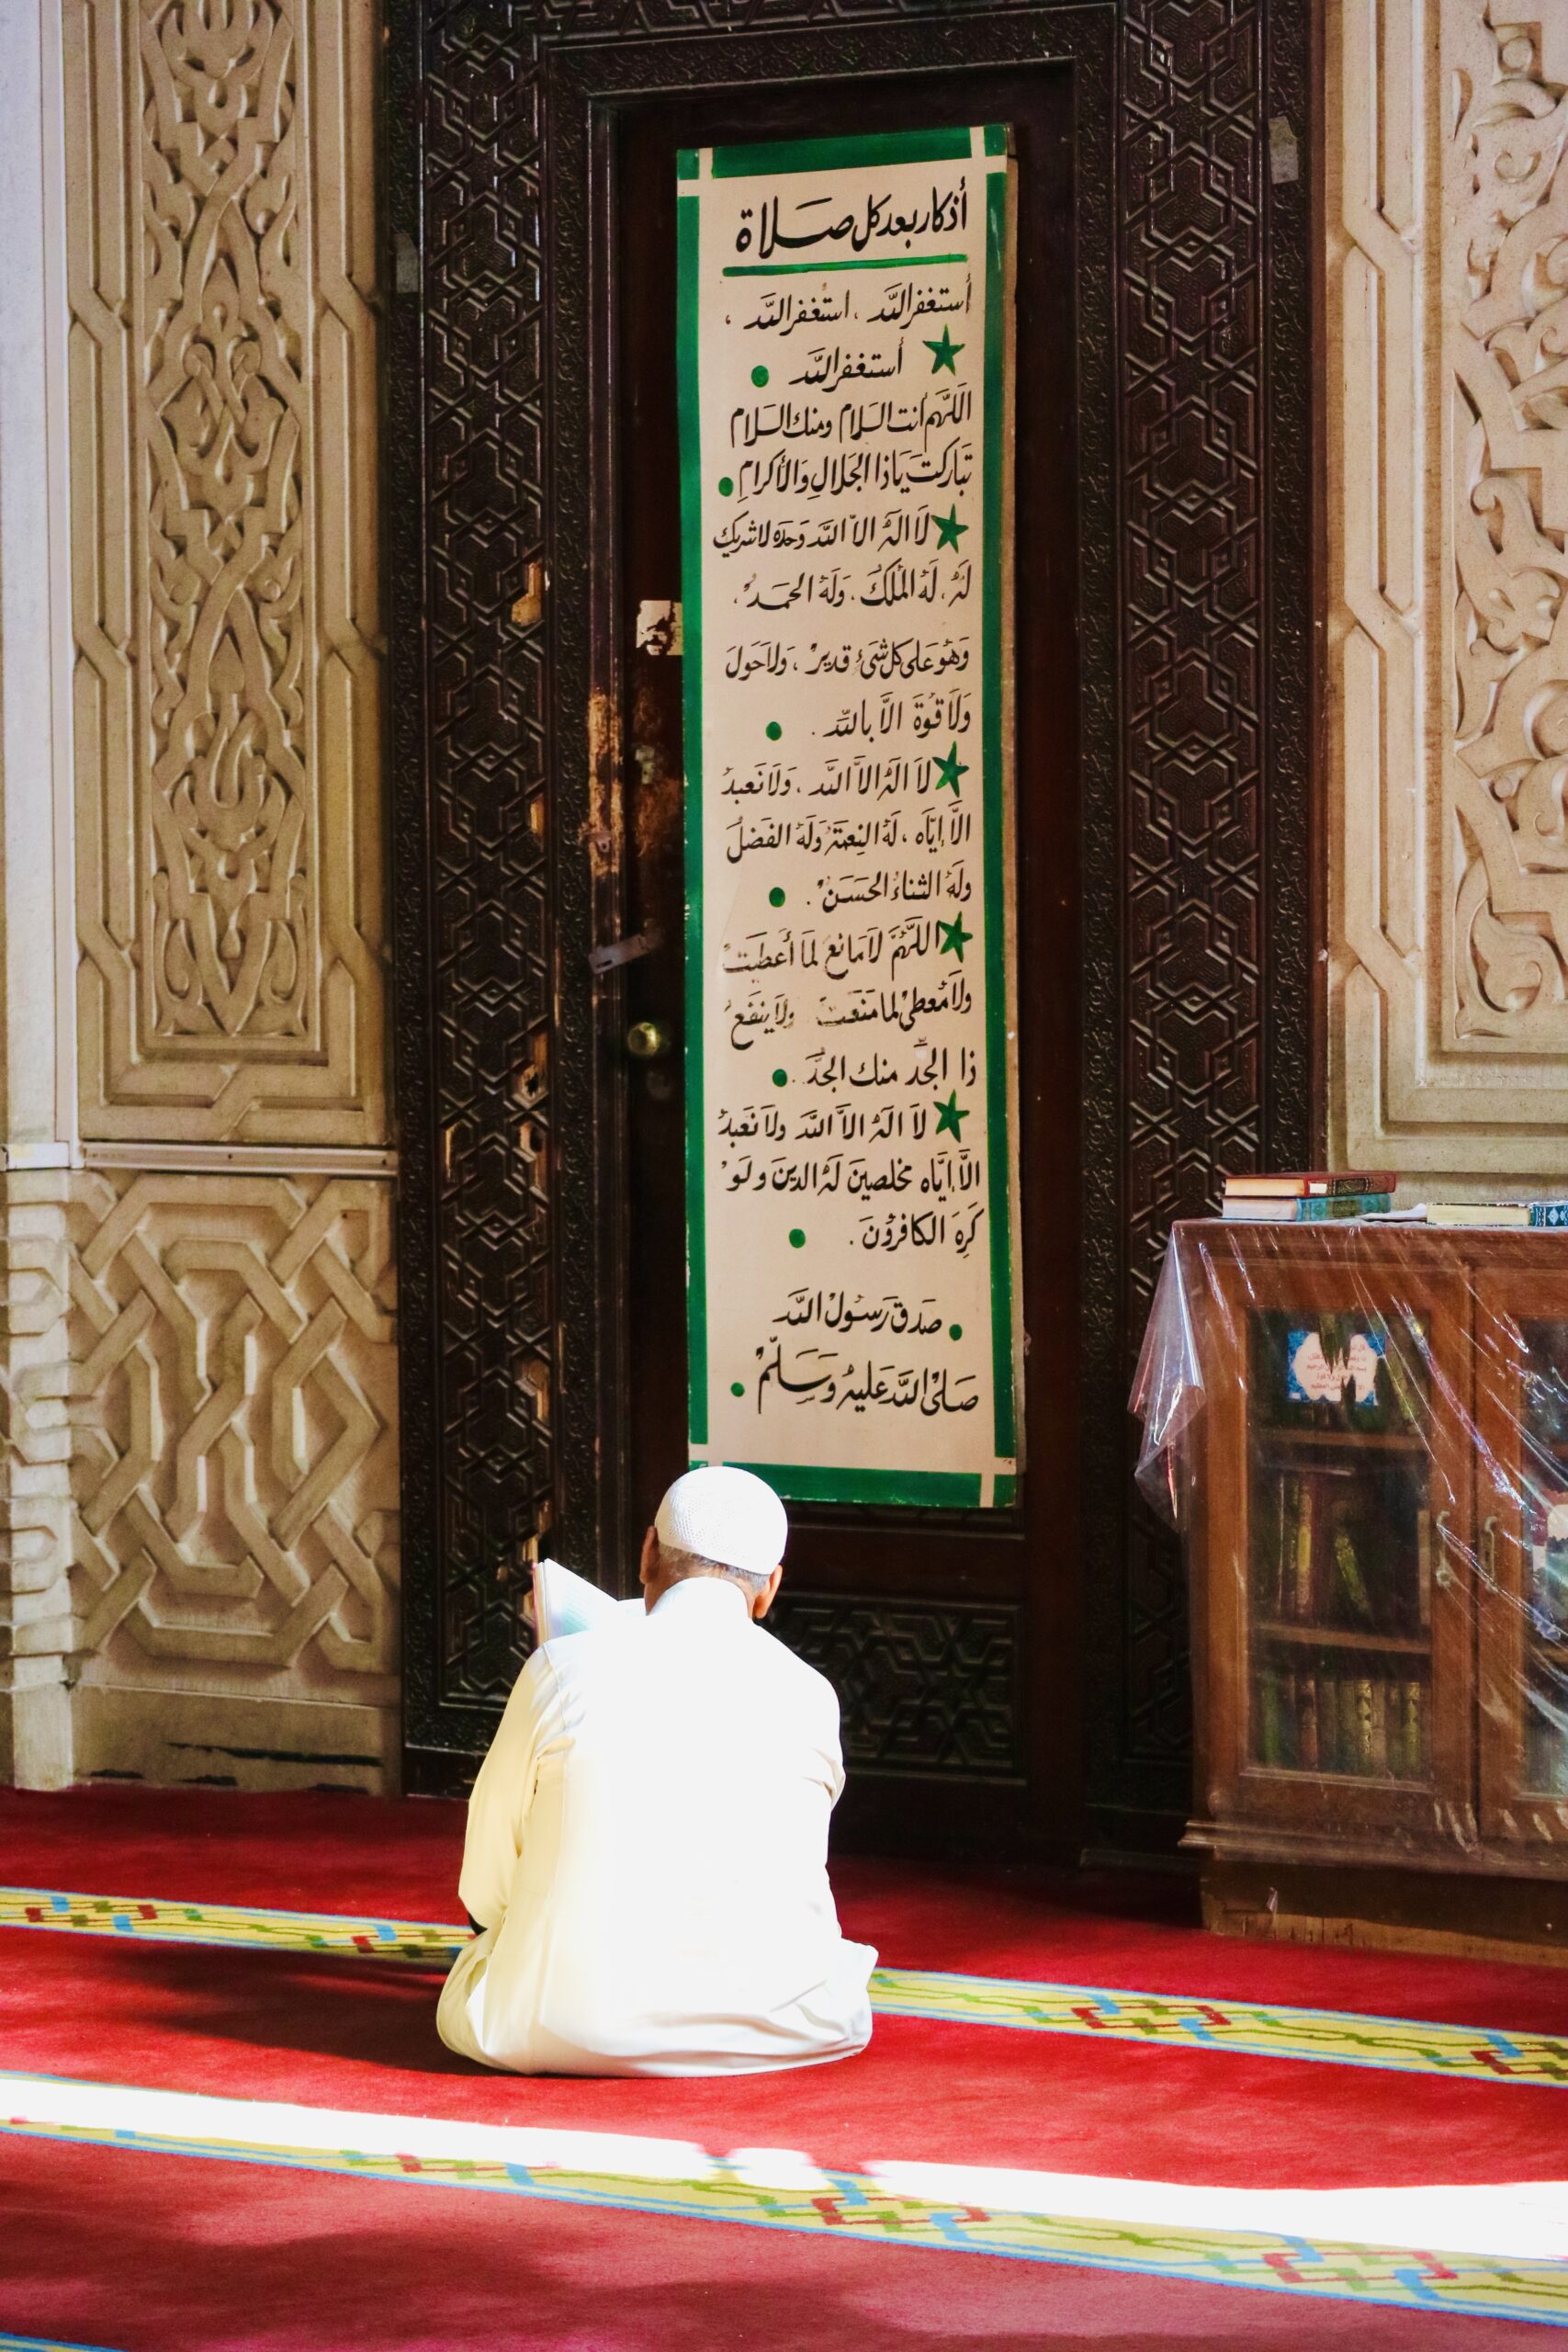 أذكار بعد كل صلاة
أستغفر الله ، استغفر الله ،
أستغفر الله
اللهم انت السلام ومنك السلام
تباركت يَا ذا الجَلالِ وَالأكرامِ
لاَ الهَ الاّ الله وَحدَه لا شريك
لهُ ، لهُ المُلكُ ، وَلهُ الحمَدْ ،
وَهُوَ عَلى كل شَىءٍ قديرْ ، وَلاَ حَولَ
وَلاَ قُوةَ الاَّ بالله .
لاَ الهَ الاَّ الله ، وَلاَ نَعبدُ
الاَّ إيَّاه ، لهُ النِعمَةُ وَلهُ الفَضلُ
ولهُ الثناءُ الحَسَنْ .
اللَّهُمَّ لاَ مَانعَ لمَا أَعطَيتْ
ولاَ مُعطىْ لما مَنَعَتْ ولاَ ينفَعُ
ذا الجَدِّ منك الجَدُّ .
لاَ الهَ الاَّ الله ولاَ نَعَبدُ
الاَّ إيَّاه مخلصينَ لهُ الدينَ ولَوْ
كَرِهَ الكافرُونَ .
صَدق رَسوُلْ الله
صَلىْ الله عَليهْ وَسَلَّمْ